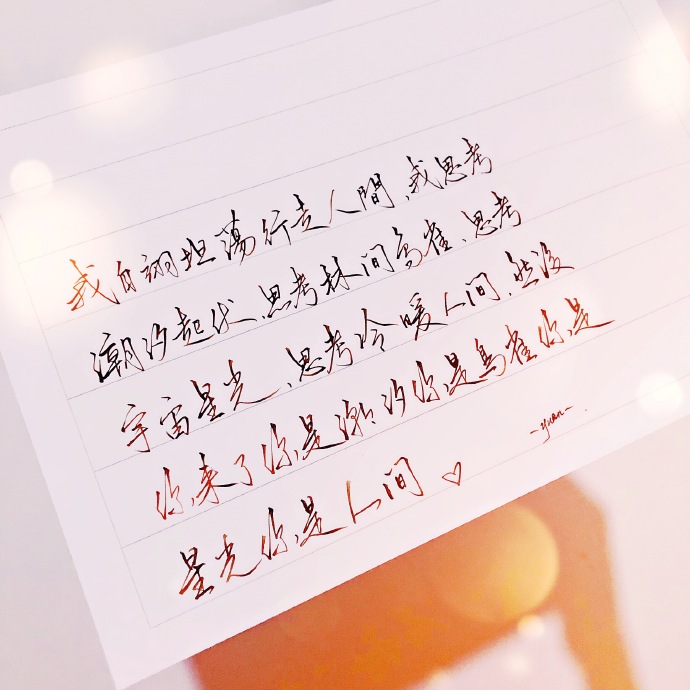 我自詡坦蕩行走人間、我思考
潮汐起伏、思考林间鸟雀、思考
宇宙星光、思考冷暖人间、然后
你来了你是潮汐你是鸟雀你是
星光你是人间♡
-yuan-